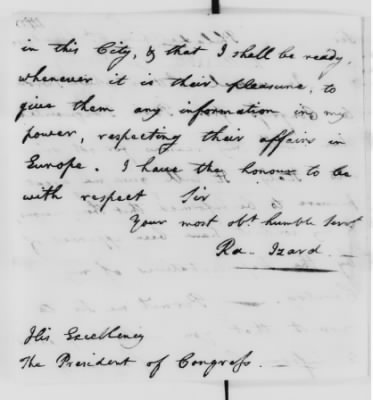 in this City, & that I shall be ready,
whenever it is their pleasure, to
give them any information in my
power, respecting their affairs in
Europe. I have the honour to be
with respect Sir
Your most obt. humble Servt.
Ra. Izard.
His Excellency
The President of Congress.